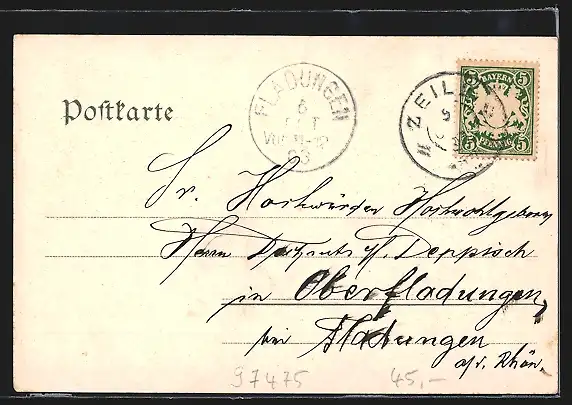 Postkarte
FLADUNGEN
5
OCT
Vor. 11-12
03
ZEIL
5
BAYERN
5
5 PFENNIG 5
Sr. Hochwürden Hochwohlgeboren
Herrn
Deppisch
in Oberfladungen,
bei Fladungen
a/v. Rhön.
97475
45,-